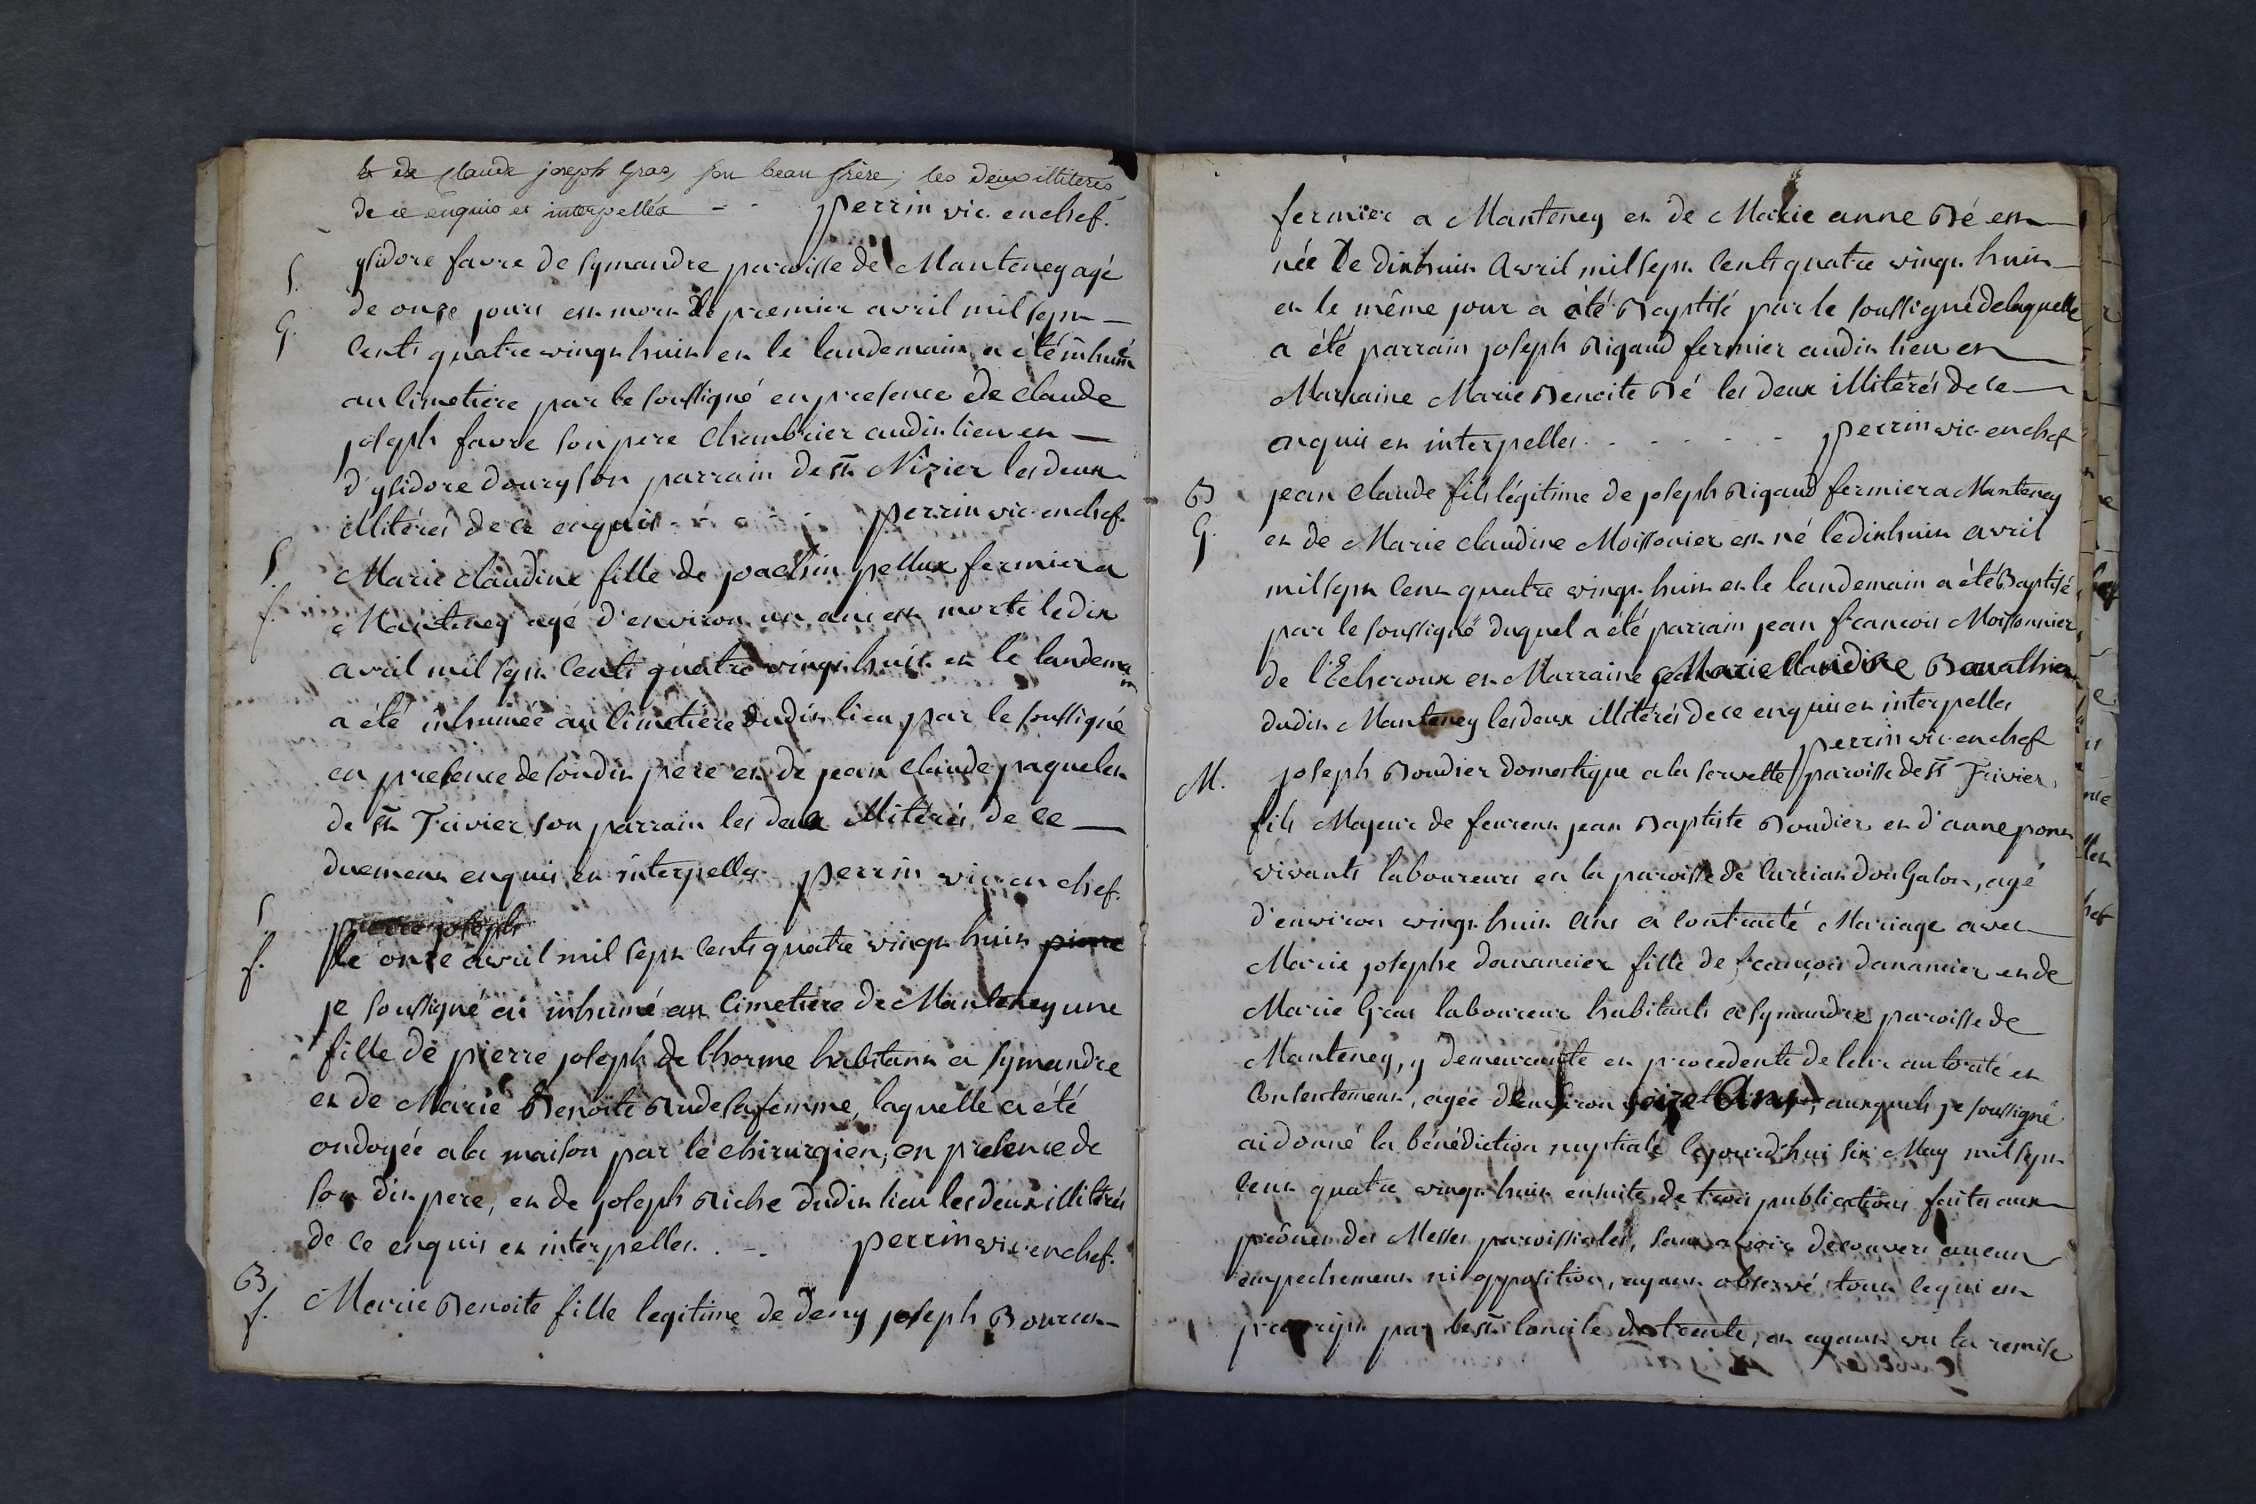 et de Claude joseph Gras, son beau frère; les deux illiterés
de ce enquis et interpellés - - perrin vic. en chef.
S.
G.
ysidore favre de Symandre paroisse de Manteney agé
de onze jours est mort le premier avril mil sept
cents quatre vingt huit et le landemain a été inhumé
au cimetiere par le soussigné en presence de Claude
joseph favre son pere chambrier audit lieu et
d'ysidore Doury son parrain de st Nizier les deux
illitérés de ce enquis - - - perrin vic. en chef.
S.
f.
Marie claudine fille de joachin pellux fermier a
Manteney agé d'environ un an est morte le dix
avril mil sept cents quatre vingt huit et le landemain
a été inhumée au cimetiere dudit lieu par le soussigné
en presence de son dit pere et de jean claude paquelet
de st Trivier son parrain les deux illitérés de ce
duement enquis et interpellés perrin vic. en chef.
S.
f.
pierre joseph
le onze avril mil sept cents quatre vingt huit pierre
je soussigné ai inhumé au cimetiere de Manteney une
fille de pierre joseph de lhorme habitant a Symandre
et de Marie Benoite Rude sa femme, laquelle a été
ondoyée a la maison par le chirurgien, en presence de
son dit pere, et de joseph Riche dudit lieu les deux illitérés
de ce enquis et interpellés. - - perrin vic. en chef.
B
f.
Marie Benoite fille legitime de deny joseph Bourcet
fermier a Manteney et de Marie anne Bé est
née le dixhuit Avril mil sept cents quatre vingt huit
et le même jour a été Baptisé par le soussigné de laquelle
a été parrain joseph Rigaud fermier audit lieu et
Marraine Marie Benoite Bé les deux illitérés de ce
enquis et interpellés. - - - - - perrin vic. en chef
B
G.
jean claude fils légitime de joseph Rigaud fermier a Manteney
et de Marie claudine Moissonier est né le dixhuit avril
mil sept cent quatre vingt huit et le landemain a été Baptisé
par le soussigné duquel a été parrain jean francois Moissonnier
de l'Echeroux et Marraine Marie Claudine
dudit Manteney les deux illitérés de ce enquis et interpellés
perrin vic. en chef
M.
joseph Boudier domestique a la servette paroisse de st Trivier,
fils Majeur de feurent jean Baptiste Boudier et d'anne pont
vivants laboureurs en la paroisse de Curciat Dongalon, agé
d'environ vingt huit ans a contracté Mariage avec
Marie josephe danancier fille de françois danancier et de
Marie Gras laboureur habitants a Symandre paroisse de
Manteney, y demeurante et procedente de leur autorité et
Consentement, agée d'environ seize Ans, auxquels je soussigné
ai donné la bénédiction nuptiale cejourd'hui six May mil sept
cent quatre vingt huit ensuite de trois publications faites aux
prônes des Messes paroissiales, sans avoir decouvert aucun
empechement ni opposition, ayant observé tout ce qui est
prescript par le st concile de trente, et ayant vu la remise